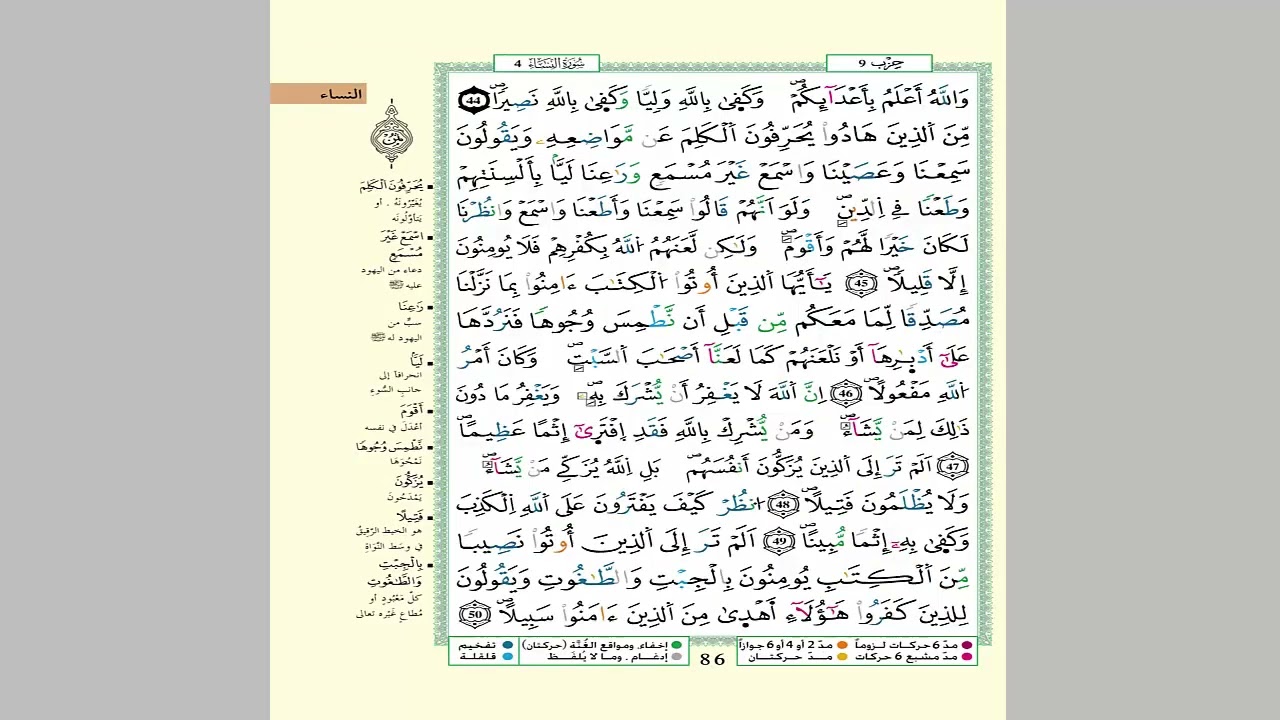 حِزْب 9
سُورَةُ النِّسَاءِ 4
النساء
وَاللَّهُ أَعْلَمُ بِأَعْدَآئِكُمْ وَكَفٰى بِاللَّهِ وَلِيّٗا وَكَفٰى بِاللَّهِ نَصِيراٗ 44
مِّنَ اَلذِينَ هَادُواْ يُحَرِّفُونَ اَلْكَلِمَ عَن مَّوَاضِعِهِۦ وَيَقُولُونَ
سَمِعْنَا وَعَصَيْنَا وَاسْمَعْ غَيْرَ مُسْمَعٖ وَرَٰعِنَا لَيّاَۢ بِأَلْسِنَتِهِمْ
وَطَعْناٗ فِے اِلدِّينِ وَلَوَ اَنَّهُمْ قَالُواْ سَمِعْنَا وَأَطَعْنَا وَاسْمَعْ وَانظُرْنَا
لَكَانَ خَيْراٗ لَّهُمْ وَأَقْوَمَ وَلَٰكِن لَّعَنَهُمُ اُللَّهُ بِكُفْرِهِمْ فَلَا يُومِنُونَ
إِلَّا قَلِيلاٗ 45 يَٰٓأَيُّهَا اَلذِينَ أُوتُواْ اُلْكِتَٰبَ ءَامِنُواْ بِمَا نَزَّلْنَا
مُصَدِّقاٗ لِّمَا مَعَكُم مِّن قَبْلِ أَن نَّطْمِسَ وُجُوهاٗ فَنَرُدَّهَا
عَلَىٰٓ أَدْبٰ۪رِهَآ أَوْ نَلْعَنَهُمْ كَمَا لَعَنَّآ أَصْحَٰبَ اَلسَّبْتِ وَكَانَ أَمْرُ
اُللَّهِ مَفْعُولاً 46 اِنَّ اَللَّهَ لَا يَغْفِرُ أَنْ يُّشْرَكَ بِهِۦ وَيَغْفِرُ مَا دُونَ
ذَٰلِكَ لِمَنْ يَّشَآءُ وَمَنْ يُّشْرِكْ بِاللَّهِ فَقَدِ اِفْتَر۪ىٰٓ إِثْماً عَظِيماً
47 اَلَمْ تَرَ إِلَى اَلذِينَ يُزَكُّونَ أَنفُسَهُم بَلِ اِللَّهُ يُزَكِّے مَنْ يَّشَآءُ
وَلَا يُظْلَمُونَ فَتِيلاً 48 اُنظُرْ كَيْفَ يَفْتَرُونَ عَلَى اَللَّهِ اِلْكَذِبَ
وَكَفٰى بِهِۦٓ إِثْماٗ مُّبِيناً 49 اَلَمْ تَرَ إِلَى اَلذِينَ أُوتُواْ نَصِيباٗ
مِّنَ اَلْكِتَٰبِ يُومِنُونَ بِالْجِبْتِ وَالطَّٰغُوتِ وَيَقُولُونَ
لِلذِينَ كَفَرُواْ هَٰٓؤُلَآءِ اَهْد۪ىٰ مِنَ اَلذِينَ ءَامَنُواْ سَبِيلاً 50
يُحَرِّفُونَ اَلْكَلِمَ
يُغَيِّرُونَهُ . أو
يَتَأَوَّلُونَه
اسْمَعْ غَيْرَ
مُسْمَعٍ
دعاء من اليهود
عليه ﷺ
رَٰعِنَا
سبٌّ من
اليهود له ﷺ
لَيّاً
انحرافًا إلى
جانب السُّوء
أَقْوَمَ
أعْدَلَ في نفسه
نَّطْمِسَ وُجُوهاً
نَمْحُوَهَا
يُزَكُّونَ
يَمْدَحُونَ
فَتِيلاً
هو الخيط الرّقيقُ
في وسط النّواة
بِالْجِبْتِ
وَالطَّٰغُوتِ
كلّ مَعْبُودٍ أو
مُطاعٍ غيْره تعالى
مدّ 6 حركات لـزوماً
مدّ 2 أو 4 أو 6 جوازاً
إخفاء، ومواقع الغُنَّة (حركتان)
تفخيم
مدّ مشبع 6 حركات
مـدّ حـركتـان
إدغـام ، ومـا لا يُلفَـظ
قلقلـة
86